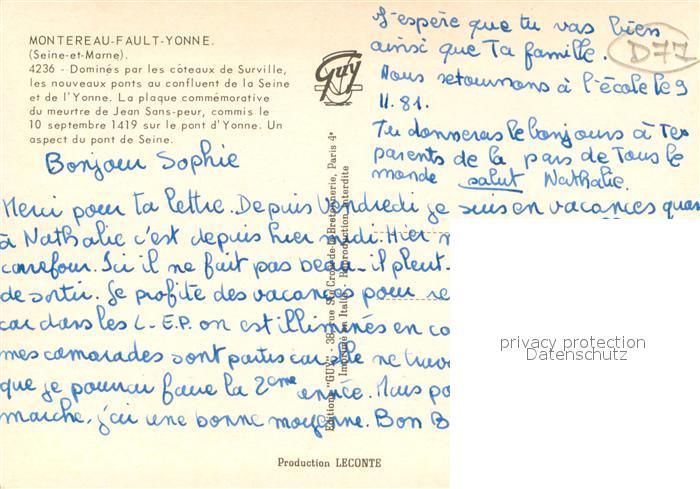 MONTEREAU-FAULT-YONNE.
(Seine-et-Marne).
4236 - Dominés par les côteaux de Surville,
les nouveaux ponts au confluent de la Seine
et de l'Yonne. La plaque commémorative
du meurtre de Jean Sans-peur, commis le
10 septembre 1419 sur le pont d'Yonne. Un
aspect du pont de Seine.
Guy
J'espère que tu vas bien
ainsi que Ta famille.
D77
Nous retournons à l'école le 9
11.81.
Tu donneras le bonjours à Tes
parents de la pars de Tous le
monde salut Nathalie.
Bonjour Sophie
Merci pour ta lettre. Depuis Vendredi je suis en vacances quan
à Nathalie c'est depuis hier midi. Hier
carefour. Ici il ne fait pas beau il pleut.
de sortir. Je profite des vacances pour re
car dans les L.E.P. on est illiminés en co
mes camarades sont partis car elle ne trava
que je pourrai faire la 2ème année. Mais po
marche, j'ai une bonne moyenne. Bon B
Editions "GUY" - 38, rue Ste Croix-de-la-Bretonnerie, Paris 4e
Imprimé en Italie - Reproduction interdite
Production LECONTE
privacy protection
Datenschutz